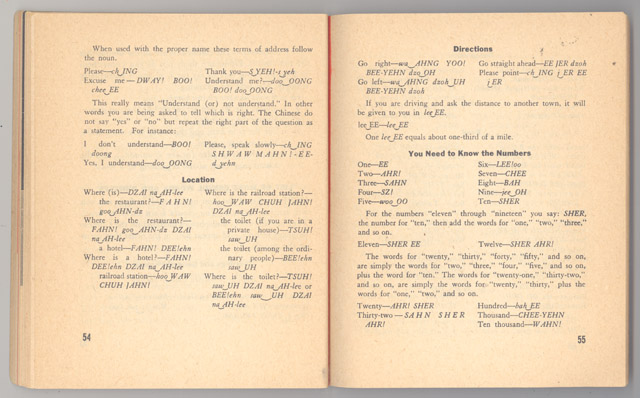 When used with the proper name these terms of address follow
the noun.
Please—ch_ING
Excuse me—DWAY! BOO!
chee_EE
Thank you—S_YEH!-s_yeh
Understand me?—doo_OONG
BOO! doo_OONG
This really means "Understand (or) not understand." In other
words you are being asked to tell which is right. The Chinese do
not say "yes" or "no" but repeat the right part of the question as
a statement. For instance:
I don't understand—BOO!
doong
Yes, I understand—doo_OONG
Please, speak slowly—ch_ING
SHWAW MAHN!-EE-
d_yehn
Location
Where (is)—DZAI na_AH-lee
the restaurant?—FAHN!
goo_AHN-dz
Where is the restaurant?—
FAHN! goo_AHN-dz DZAI
na_AH-lee
a hotel—FAHN! DEE!ehn
Where is a hotel?—FAHN!
DEE!ehn DZAI na_AH-lee
railroad station—hoo_WAW
CHUH JAHN!
Where is the railroad station?—
hoo_WAW CHUH JAHN!
DZAI na_AH-lee
the toilet (if you are in a
private house)—TSUH!
saw_UH
the toilet (among the ordi-
nary people)—BEE!ehn
saw_UH
Where is the toilet?—TSUH!
saw_UH DZAI na_AH-lee or
BEE!ehn saw_UH DZAI
na_AH-lee
54
Directions
Go right—wa_AHNG YOO!
BEE-YEHN dzo_OH
Go left—wa_AHNG dzoh_UH
BEE-YEHN dzoh
Go straight ahead—EE JER dzoh
Please point—ch_ING j_ER EE
j_ER
If you are driving and ask the distance to another town, it will
be given to you in lee_EE.
lee_EE—lee_EE
One lee_EE equals about one-third of a mile.
You Need to Know the Numbers
One—EE
Two—AHR!
Three—SAHN
Four—SZ!
Five—woo_OO
Six—LEE!oo
Seven—CHEE
Eight—BAH
Nine—jee_OH
Ten—SHER
For the numbers "eleven" through "nineteen" you say: SHER,
the number for "ten," then add the words for "one," "two," "three,"
and so on.
Eleven—SHER EE
Twelve—SHER AHR!
The words for "twenty," "thirty," "forty," "fifty," and so on,
are simply the words for "two," "three," "four," "five," and so on,
plus the word for "ten." The words for "twenty-one," "thirty-two,"
and so on, are simply the words for "twenty," "thirty," plus the
words for "one," "two," and so on.
Twenty—AHR! SHER
Thirty-two—SAHN SHER
AHR!
Hundred—bah_EE
Thousand—CHEE-YEHN
Ten thousand—WAHN!
55